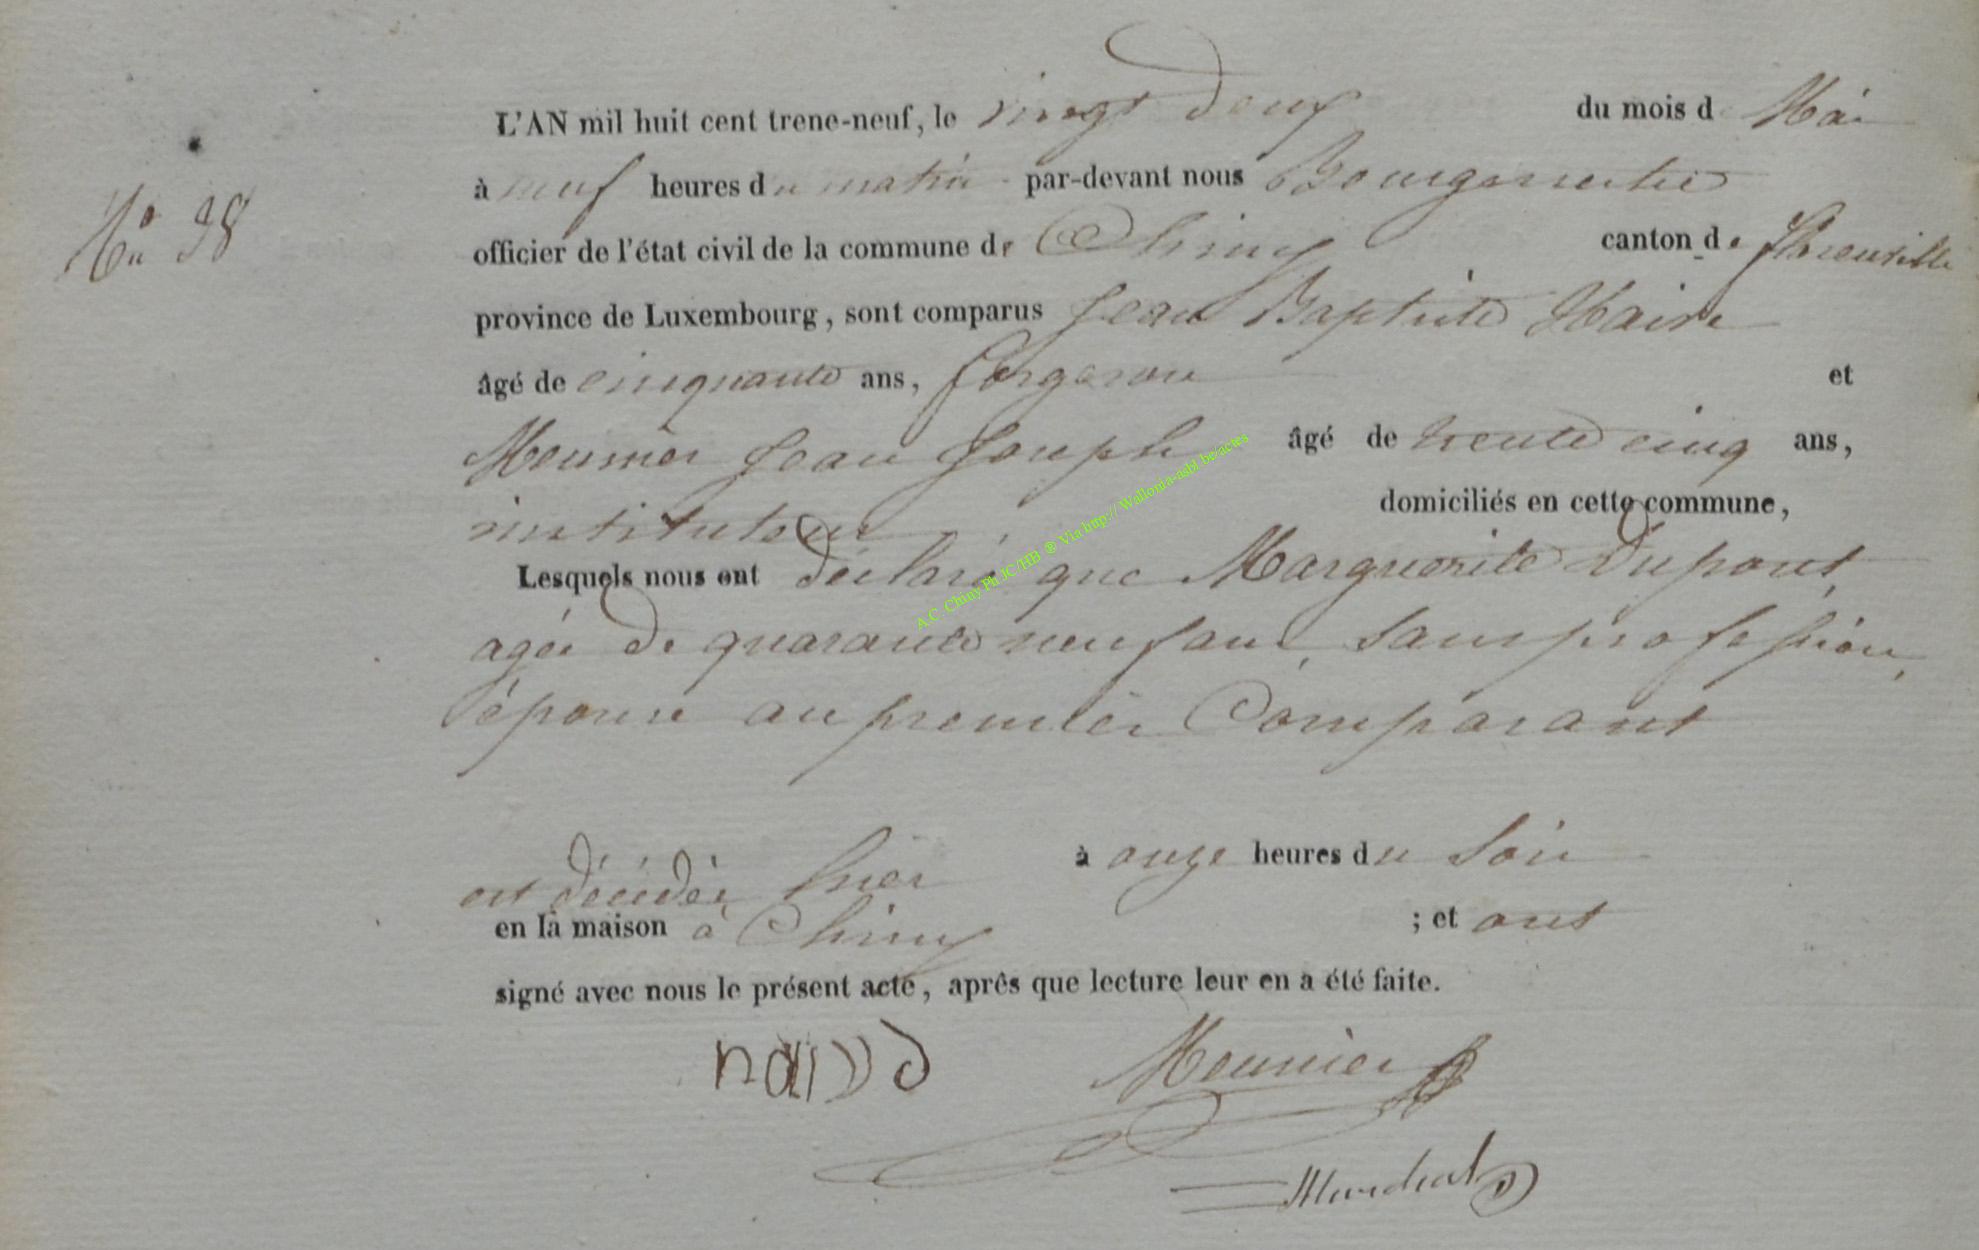 L'AN mil huit cent trene-neuf, le vingt deux du mois de Mai
à neuf heures du matin par-devant nous Bourgmestre
No 38
officier de l'état civil de la commune de Chiny canton de Florenville
province de Luxembourg, sont comparus Jean Baptiste
âgé de cinquante ans, forgeron et
Meunier Jean Joseph âgé de trente cinq ans,
instituteur domiciliés en cette commune,
Lesquels nous ont déclaré que Marguerite Dupont,
agée de quarante neuf ans, sans profession,
épouse au premier Comparant
est décédée hier à onze heures du soir
en la maison à Chiny ; et ont
signé avec nous le présent acte, après que lecture leur en a été faite.
Meunier
A.C. Chiny Ph JC/HB ® Via http://Wallonia-asbl.be/actes